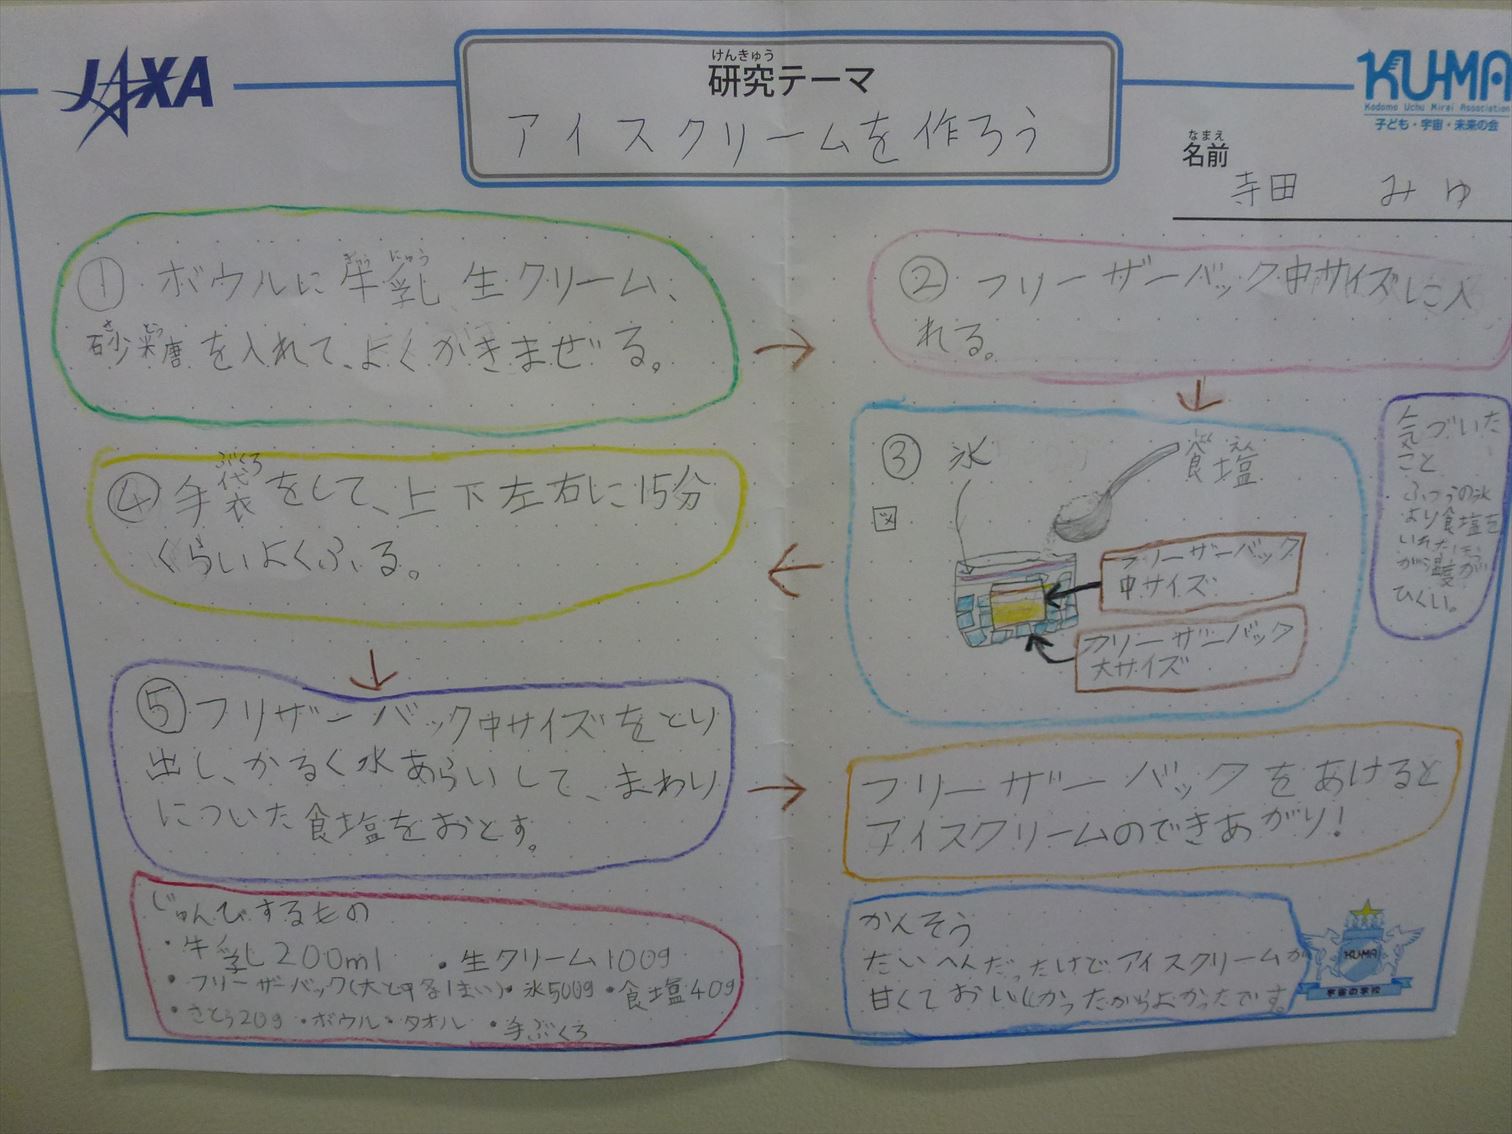 JAXA
けんきゅう
研究テーマ
アイスクリームを作ろう
KU-MA
Kodomo Uchu Mirai Association
子ども・宇宙・未来の会
なまえ
名前
寺田 みゆ
① ボウルに牛乳、生クリーム、
ぎゅう にゅう
砂糖を入れて、よくかきまぜる。
さ とう
② フリーザーバック中サイズに入
れる。
③ 氷
食塩
図
フリーザーバック
中サイズ
フリーザーバック
大サイズ
気づいた
こと
ふつうの氷
より食塩を
いれたほう
が温度が
ひくい。
④ 手袋をして、上下左右に15分
ぶくろ
くらいよくふる。
⑤ フリザーバック中サイズをとり
出し、かるく水あらいして、まわり
についた食塩をおとす。
フリーザーバックをあけると
アイスクリームのできあがり!
じゅんびするもの
・牛乳200ml ・生クリーム100g
・フリーザーバック(大と中各1まい)・氷500g・食塩40g
・さとう20g ・ボウル・タオル ・手ぶくろ
かんそう
たいへんだったけどアイスクリームが
甘くておいしかったからよかったです。
KU-MA
宇宙の学校